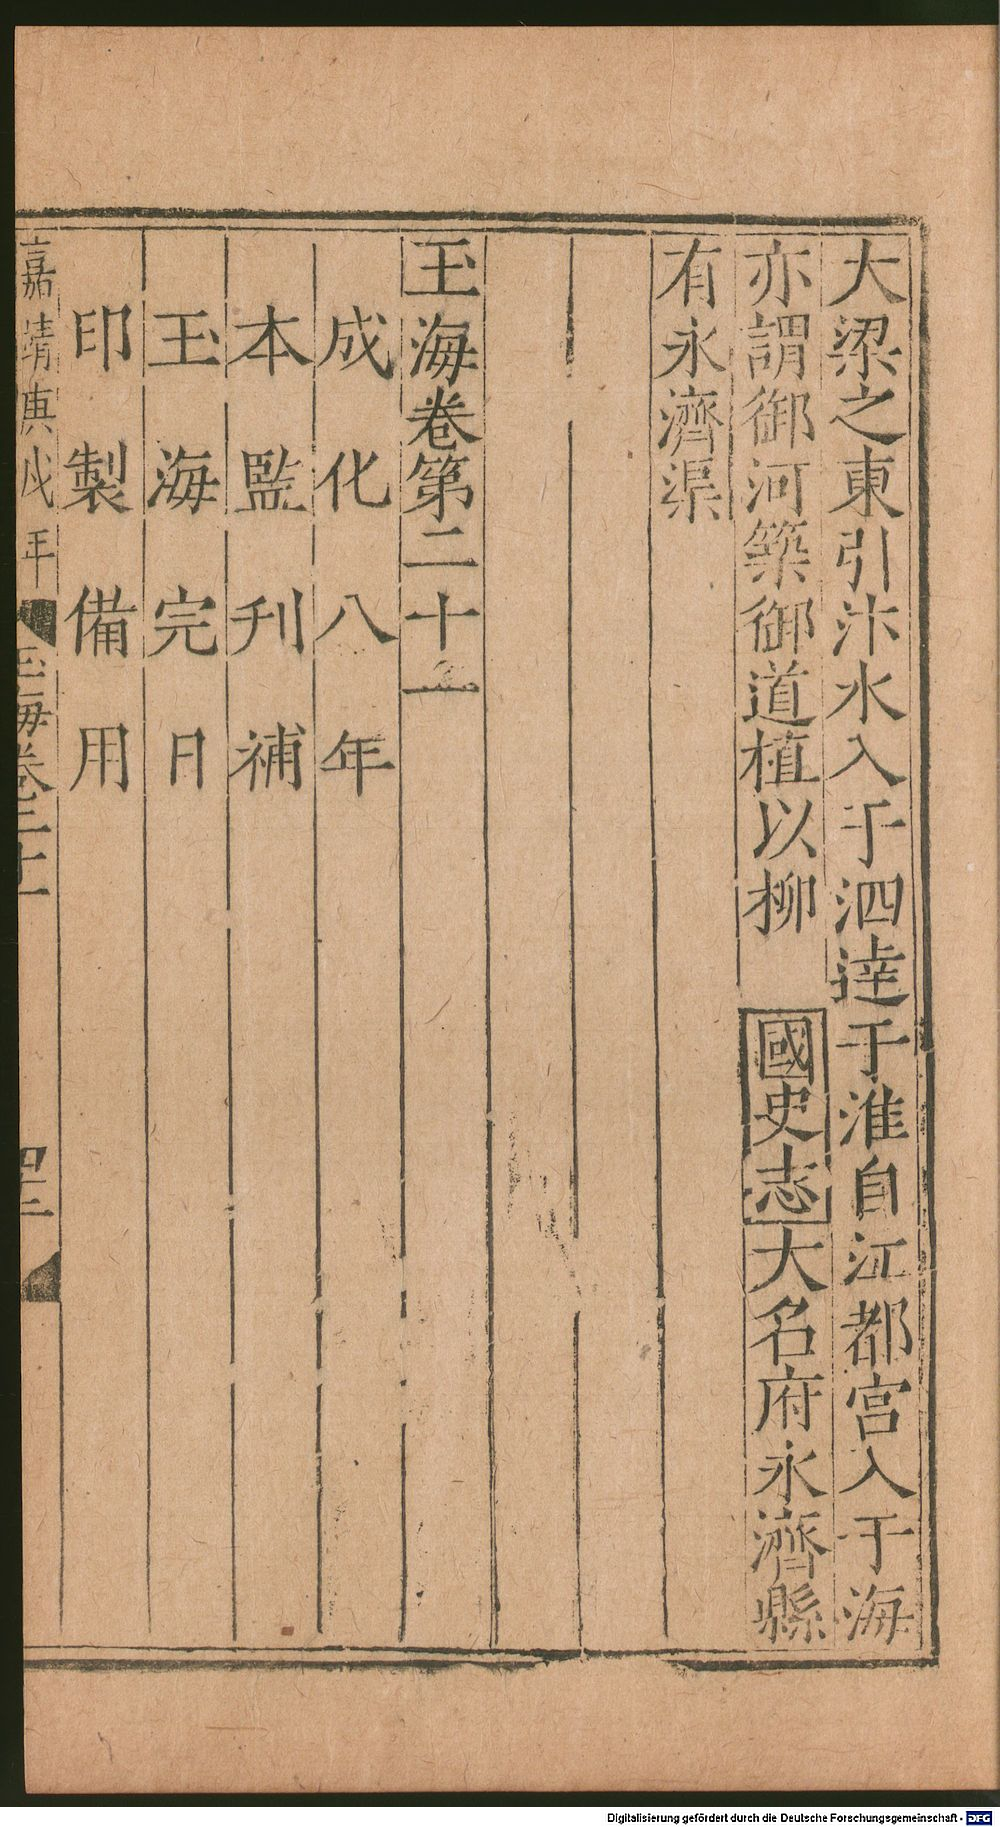 大梁之東引汴水入于泗達于淮自江都宫入于海
亦謂御河築御道植以柳 國史志大名府永濟縣
有永濟渠
玉海卷第二十一
成化八年
本監刋補
玉海完日
印製備用
嘉靖庚戌年 玉海卷二十一 四十二
Digitalisierung gefördert durch die Deutsche Forschungsgemeinschaft - DFG